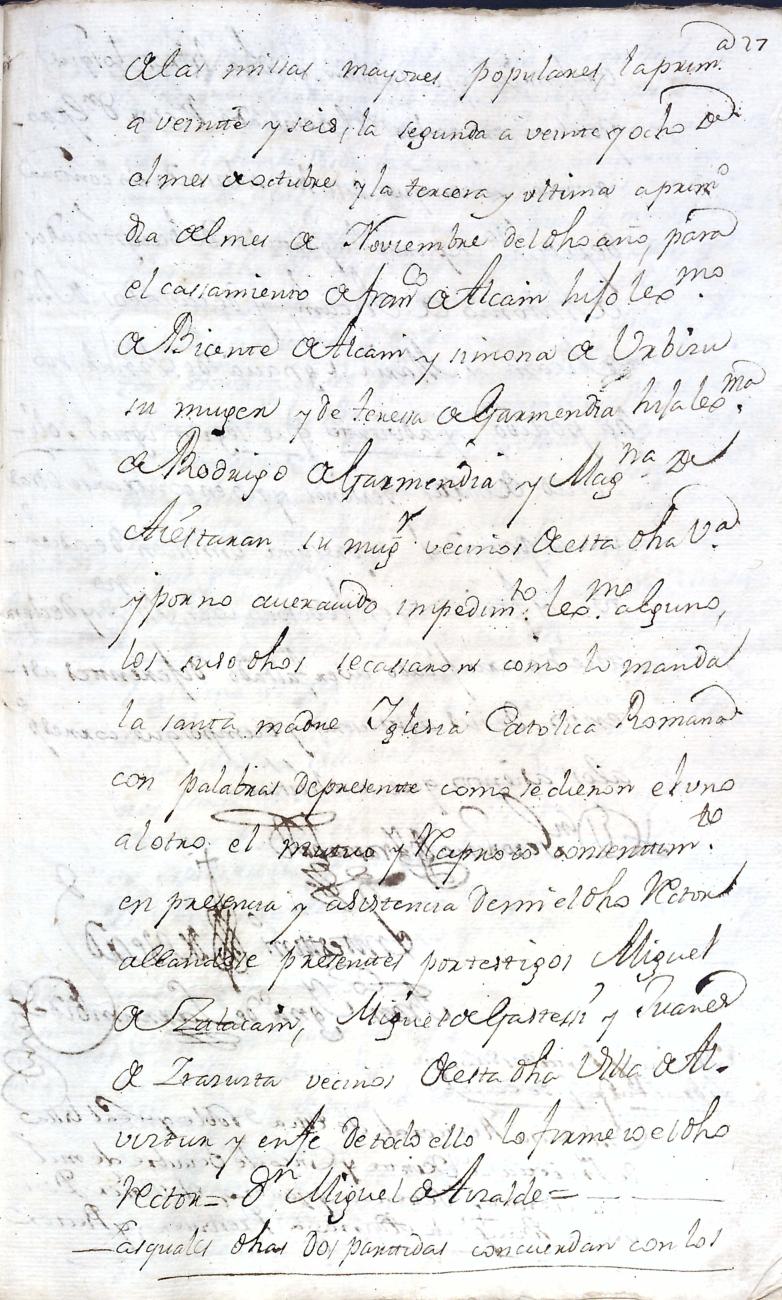 27
de las missas mayores populares, la prim.ª
a veinte y seis, la segunda a veinte y ocho de
el mes de octubre y la tercera y vltima a prim.º
dia del mes de Noviembre del dho año, para
el cassamiento de fran.co de Alcain hijo lex.mo
de Bicente de Alcain y simona de Urbiru
su muger y de teressa de Garmendia hija lex.ma
de Rodrigo de Garmendia y Mag.na de
Aiestaran su mug.r vecinos de esta dha V.ª
y por no aver avido impedim.to lex.mo alguno,
los suso dhos se cassaron como lo manda
la santa madre Iglesia Catolica Romana
con palabras de presente como se dieron el vno
al otro el mutuo y Reciproco consentim.to
en presencia y asistencia de mi el dho Rector
allandose presentes por testigos Miguel
de Zalacain, Miguel de Gastessi y Juanes
de Irazusta vecinos de esta dha Villa de Al-
viztur y en fe de todo ello lo firme io el dho
Rector = D.n Miguel de Airalde =
Las quales dhas dos partidas concuerdan con los